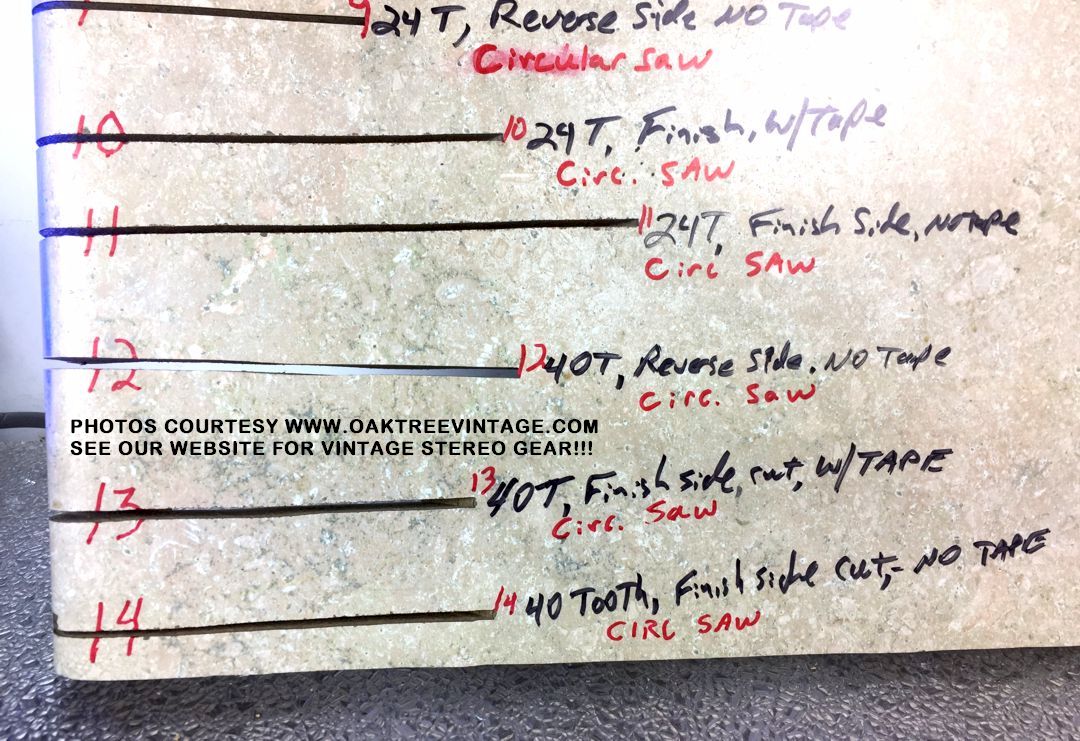 9 24T, Reverse Side NO Tape
Circular saw
10 10 24T, Finish, W/Tape
Circ. SAW
11 11 24T, Finish Side, NO Tape
Circ SAW
12 12 40T, Reverse Side. NO Tape
Circ. Saw
PHOTOS COURTESY WWW.OAKTREEVINTAGE.COM
SEE OUR WEBSITE FOR VINTAGE STEREO GEAR!!!
13 13 40T, Finish side, cut, W/TAPE
Circ. Saw
14 14 40 TOOTH, Finish side cut,- NO TAPE
CIRC SAW